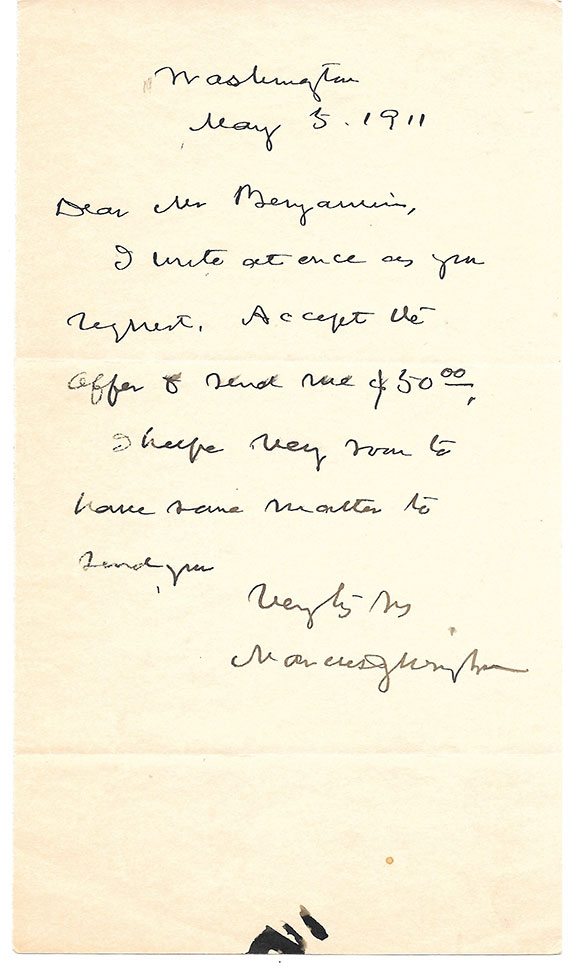 Washington
May 5. 1911
Dear Mr Benjamin,
I write at once as you
request. Accept the
offer & send me $50.00,
I hope very soon to
have some matter to
send you
Very try Yrs
Marcus J Wright